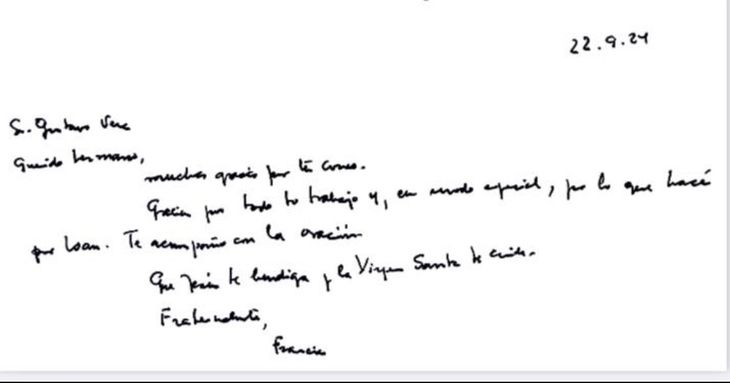 22.9.24
Sr. Gustavo Vera
Querido hermano,
muchas gracias por tu correo.
Gracias por todo tu trabajo y, en modo especial, por lo que hacés
por Loan. Te acompaño con la oración
Que Jesús te bendiga y la Virgen Santa te cuide.
Fraternalmente,
Francisco